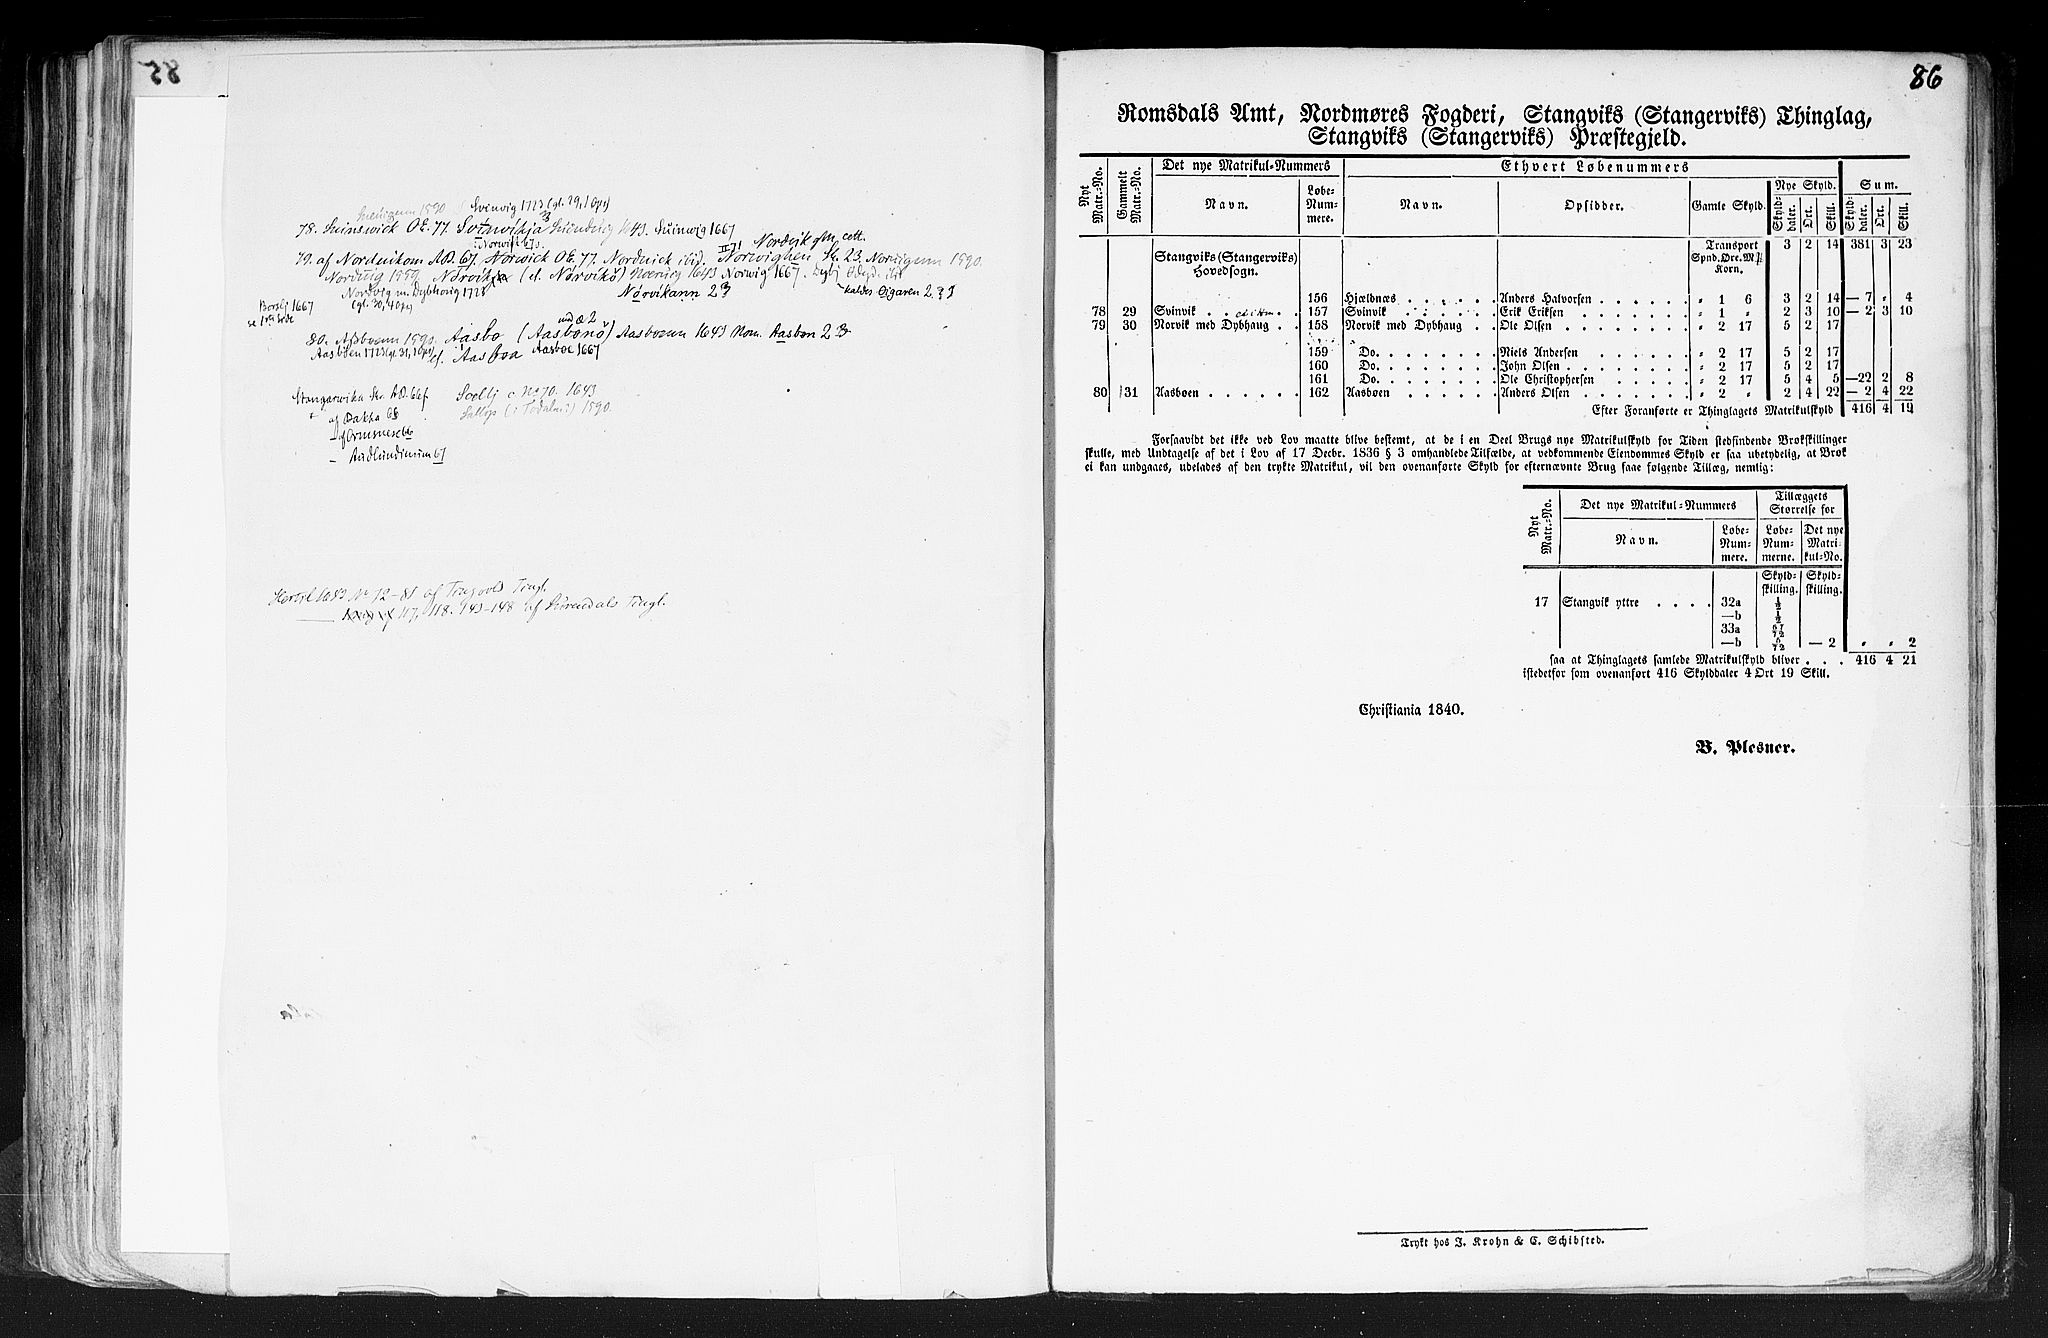 78. Suinswick OE. 77. Svinvikja Suinuig 1643. Suinwig 1667
Svinvig 1723 (gl. 29, 1 Ops)
79. af Norduikom AB. 67. Norwick OE. 77. Norduick ibid. Norwighen Sk. 23. Norwigum 1590.
Norduig 1559. Nørvikja (el. Nørvikå) 1643 Norwig 1667.
Nordvig m. Dybhoug 1723
(gl. 30, 4 Ops)
Nørvikann 2
80. Aasboem 1590. Aasbo (Aasbonå) Aasboeun 1643 Nom. Aasbon 2
Aasbøen 1723 (gl. 31, 1 Ops) el. Aasboa Aasboe 1667
Stangarvika Skr. AB. 66f Scelbj c No 70. 1643
af Bakka 68
Hertil 1643 No 72-81 af Tingvold Tingl.
117, 118. 143-148 af Surendals Tingl.
86
Romsdals Amt, Nordmøres Fogderi, Stangviks (Stangerviks) Thinglag,
Stangviks (Stangerviks) Præstegjeld.
Nyt Matr.-No. Gammelt Matr.-No. Det nye Matrikul-Nummers Ethvert Løbenummers
Navn. Løbe-Nummere. Navn. Opsidder. Gamle Skyld. Nye Skyld. Sum.
Skylddaler. Ort. Skill. Skylddaler. Ort. Skill.
Transport 3 2 14 381 3 23
Stangviks (Stangerviks) Spnd. Øre. Mk.
Hovedsogn. Korn.
156 Hjældnæs . . . . . . Anders Halvorsen . . . . . . " 1 6 3 2 14 — 7 " 4
78 29 Svinvik . . 157 Svinvik . . . . . Erik Eriksen . . . . . . . " 1 " 2 3 10 — 2 3 10
79 30 Norvik med Dybhaug . . 158 Norvik med Dybhaug . . Ole Olsen . . . . . . . . " 2 17 5 2 17
159 Do. . . . . . . . Niels Andersen . . . . . . " 2 17 5 2 17
160 Do. . . . . . . . John Olsen . . . . . . . " 2 17 5 2 17
161 Do. . . . . . . . Ole Christophersen . . . . . " 2 17 5 4 5 —22 2 8
80 31 Aasbøen . . . . . . 162 Aasbøen . . . . . . Anders Olsen . . . . . . . " 2 " 2 4 22 — 2 4 22
Efter Foranførte er Thinglagets Matrikulskyld 416 4 19
Forsaavidt det ikke ved Lov maatte blive bestemt, at de i en Deel Brugs nye Matrikulskyld for Tiden stedfindende Brøkskillinger
skulle, med Undtagelse af det i Lov af 17 Decbr. 1836 § 3 omhandlede Tilfælde, at vedkommende Eiendommes Skyld er saa ubetydelig, at Brøk
ei kan undgaaes, udelades af den trykte Matrikul, vil den ovenanførte Skyld for efternævnte Brug faae følgende Tillæg, nemlig:
Nyt Matr.-No. Det nye Matrikul-Nummers Tillæggets Størrelse for
Navn. Løbe-Nummere. Løbe-Nummerne. Det nye Matrikul-No.
Skyldskilling. Skyldskilling.
17 Stangvik yttre . . . . 32a ½
—b ½
33a 67/72
—b 5/72 — 2 " " 2
saa at Thinglagets samlede Matrikulskyld bliver . . . 416 4 21
istedetfor som ovenanført 416 Skylddaler 4 Ort 19 Skill.
Christiania 1840.
B. Plesner.
Trykt hos J. Krohn & C. Schibsted.